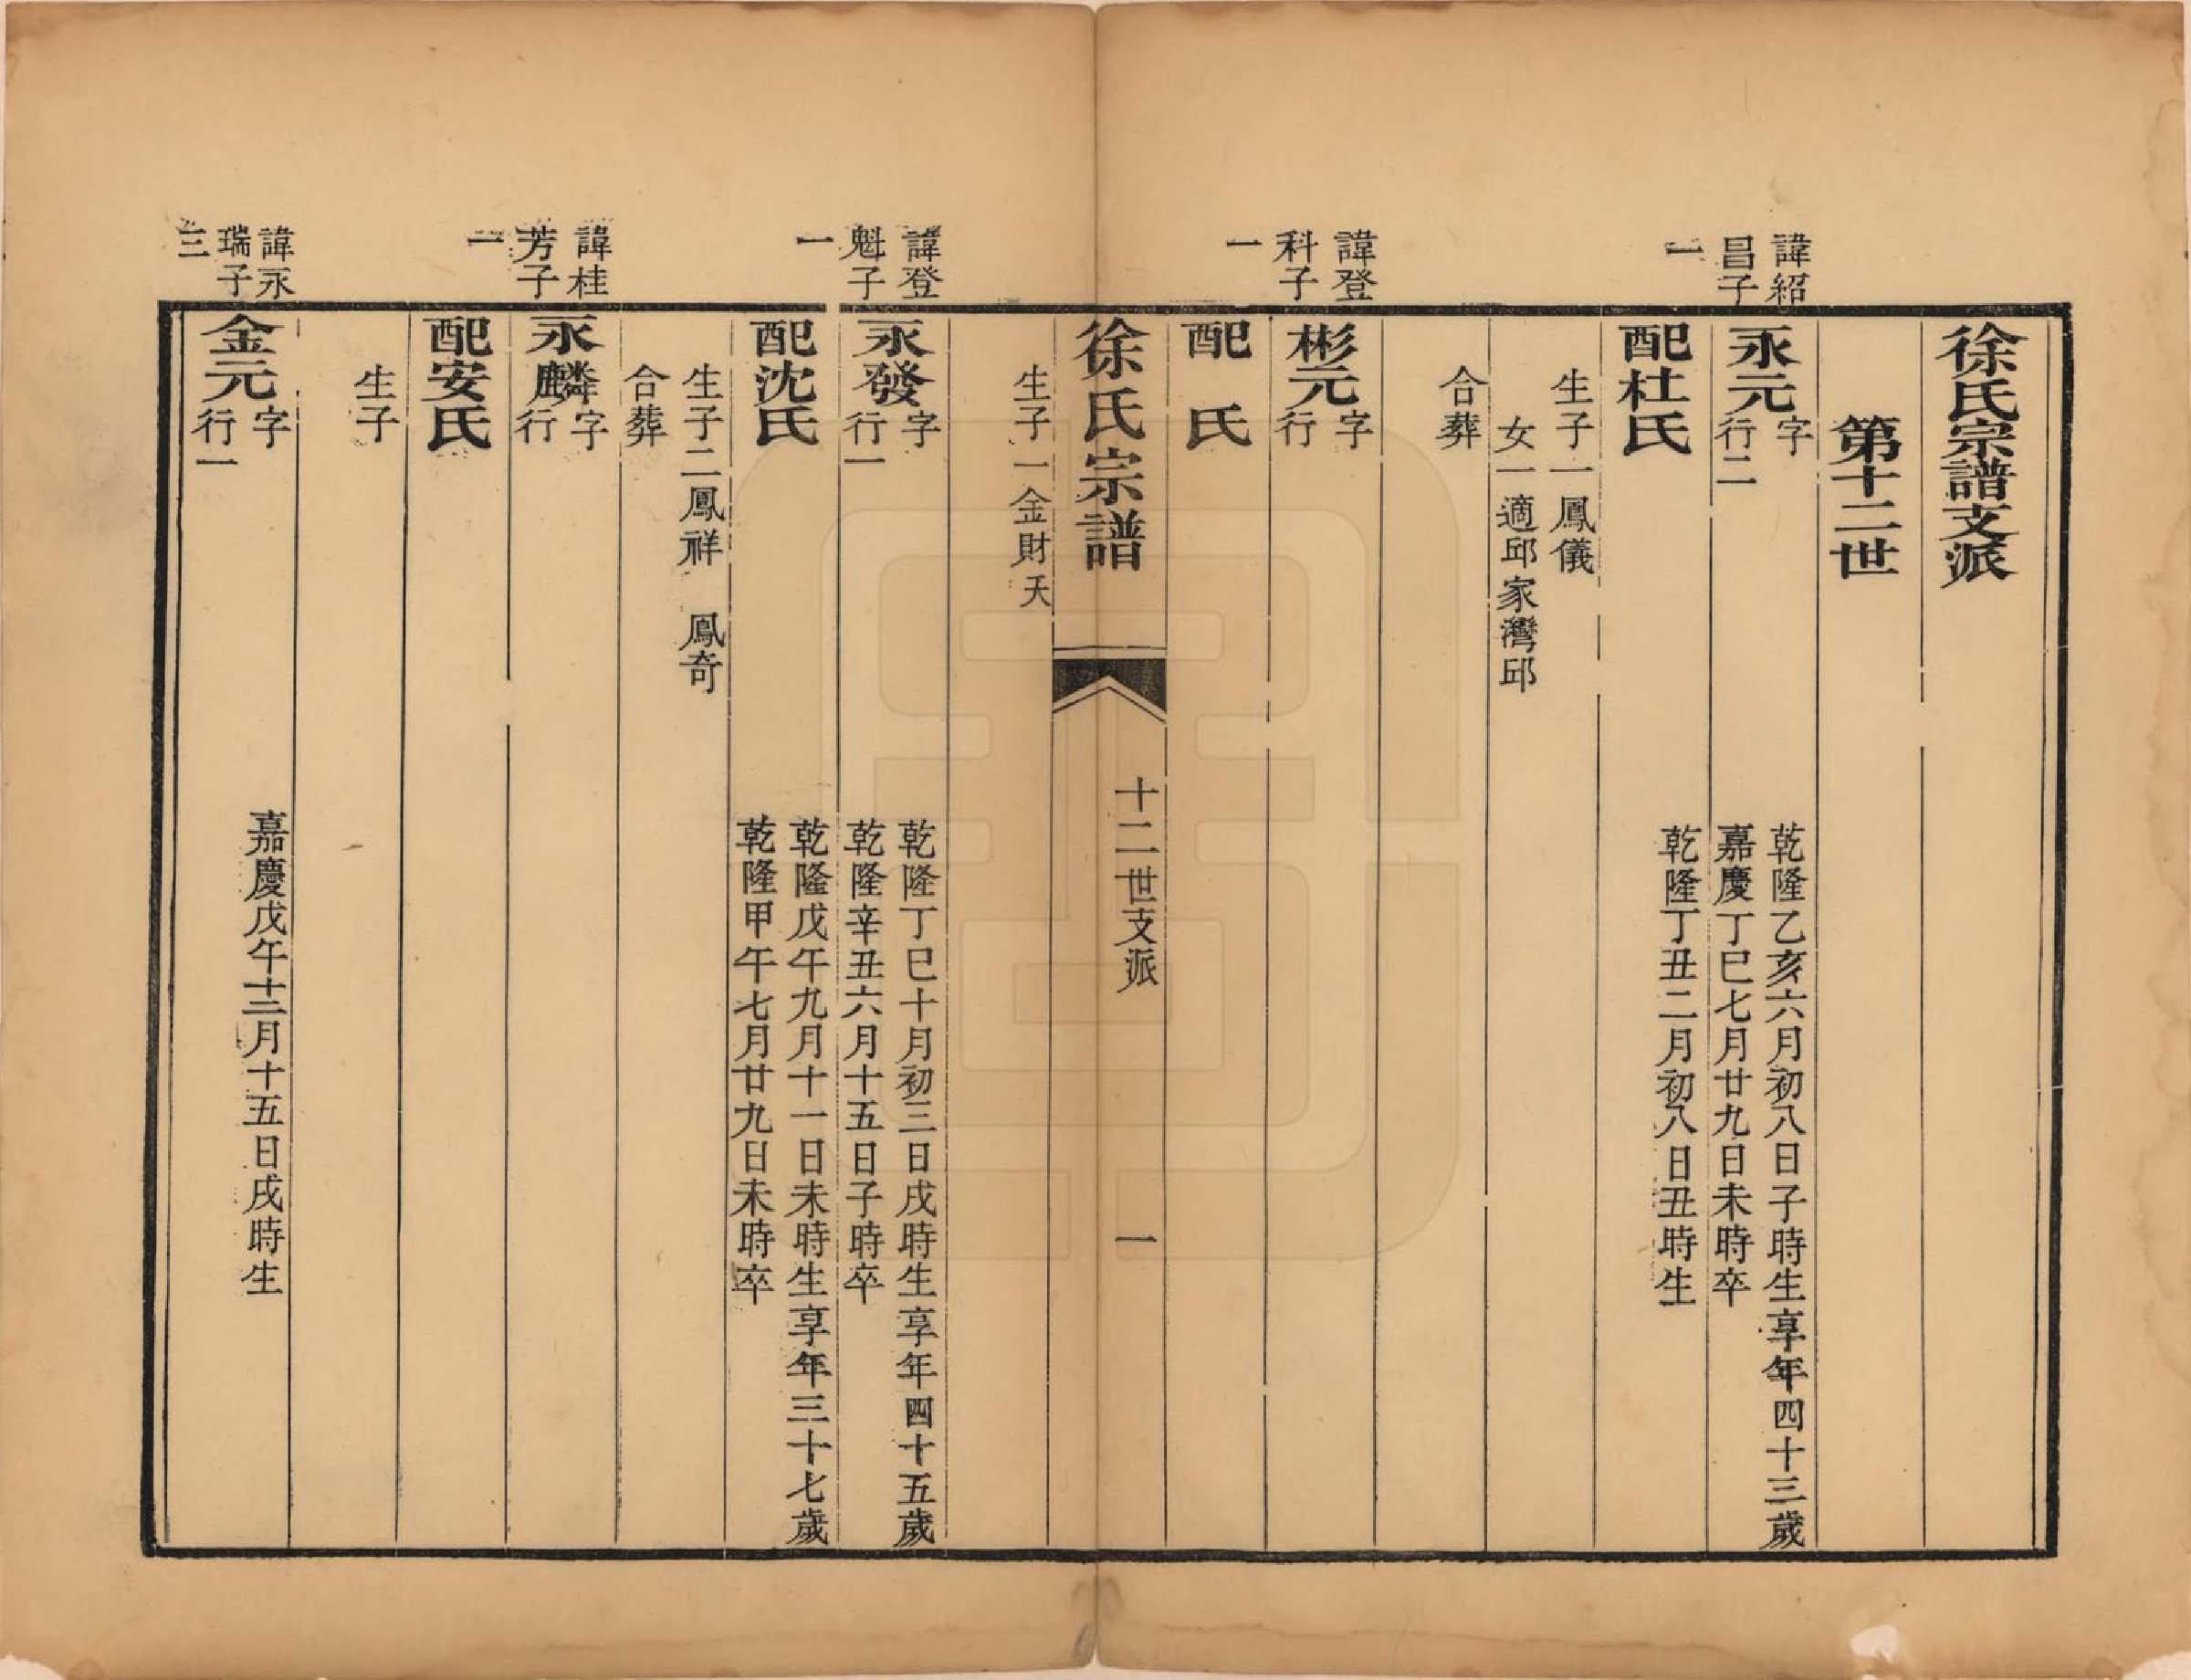 徐氏宗譜支派
第十二世
諱紹
昌子
一
永元
字
行二
乾隆乙亥六月初八日子時生享年四十三歲
嘉慶丁巳七月廿九日未時卒
配杜氏
乾隆丁丑二月初八日丑時生
生子一鳳儀
女一適邱家灣邱
合葬
諱登
科子
一
彬元
字
行
配 氏
徐氏宗譜
十二世支派
一
生子一金財夭
諱登
魁子
一
永發
字
行一
乾隆丁巳十月初三日戌時生享年四十五歲
乾隆辛丑六月十五日子時卒
配沈氏
乾隆戊午九月十一日未時生享年三十七歲
乾隆甲午七月廿九日未時卒
生子二鳳祥 鳳奇
合葬
諱桂
芳子
一
永麟
字
行
配安氏
生子
諱永
瑞子
三
金元
字
行一
嘉慶戊午十二月十五日戌時生